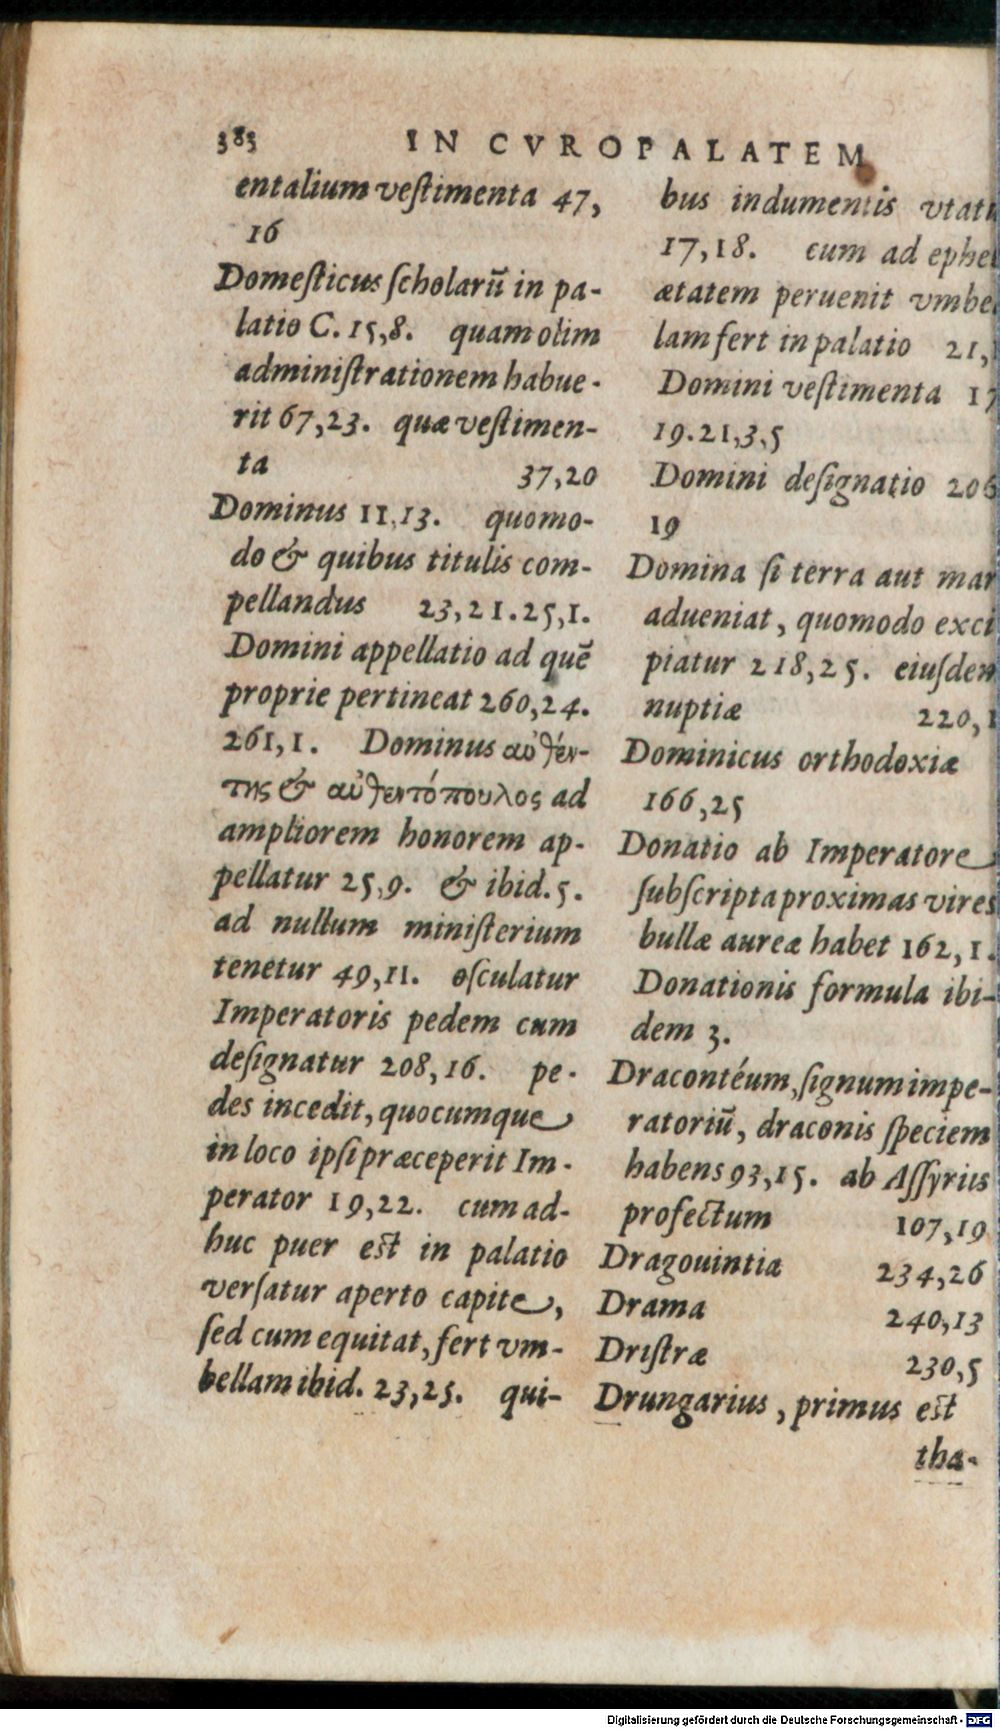 383
IN CVROPALATEM
entalium veſtimenta 47,
16
Domeſticus ſcholarũ in pa-
latio C. 15,8. quam olim
adminiſtrationem habue-
rit 67,23. quæ veſtimen-
ta 37,20
Dominus 11,13. quomo-
do & quibus titulis com-
pellandus 23,21.25,1.
Domini appellatio ad quẽ
proprie pertineat 260,24.
261,1. Dominus αὐθέν-
της & αὐθεντόπουλος ad
ampliorem honorem ap-
pellatur 25,9. & ibid.5.
ad nullum miniſterium
tenetur 49,11. oſculatur
Imperatoris pedem cum
deſignatur 208,16. pe-
des incedit, quocumque
in loco ipſi præceperit Im-
perator 19,22. cum ad-
huc puer eſt in palatio
verſatur aperto capite,
ſed cum equitat, fert vm-
bellam ibid. 23,25. qui-
bus indumentis vtatu
17,18. cum ad ephe
ætatem peruenit vmbe
lam fert in palatio 21,
Domini veſtimenta 17
19.21,3,5
Domini deſignatio 206
19
Domina ſi terra aut mar
adueniat, quomodo exci
piatur 218,25. eiuſdem
nuptiæ 220,1
Dominicus orthodoxiæ
166,25
Donatio ab Imperatore
ſubſcripta proximas vires
bullæ aureæ habet 162,1.
Donationis formula ibi-
dem 3.
Dracontéum, ſignum impe-
ratoriũ, draconis ſpeciem
habens 93,15. ab Aſſyriis
profectum 107,19
Dragouintiæ 234,26
Drama 240,13
Driſtræ 230,5
Drungarius, primus eſt
tha-
Digitalisierung gefördert durch die Deutsche Forschungsgemeinschaft - DFG